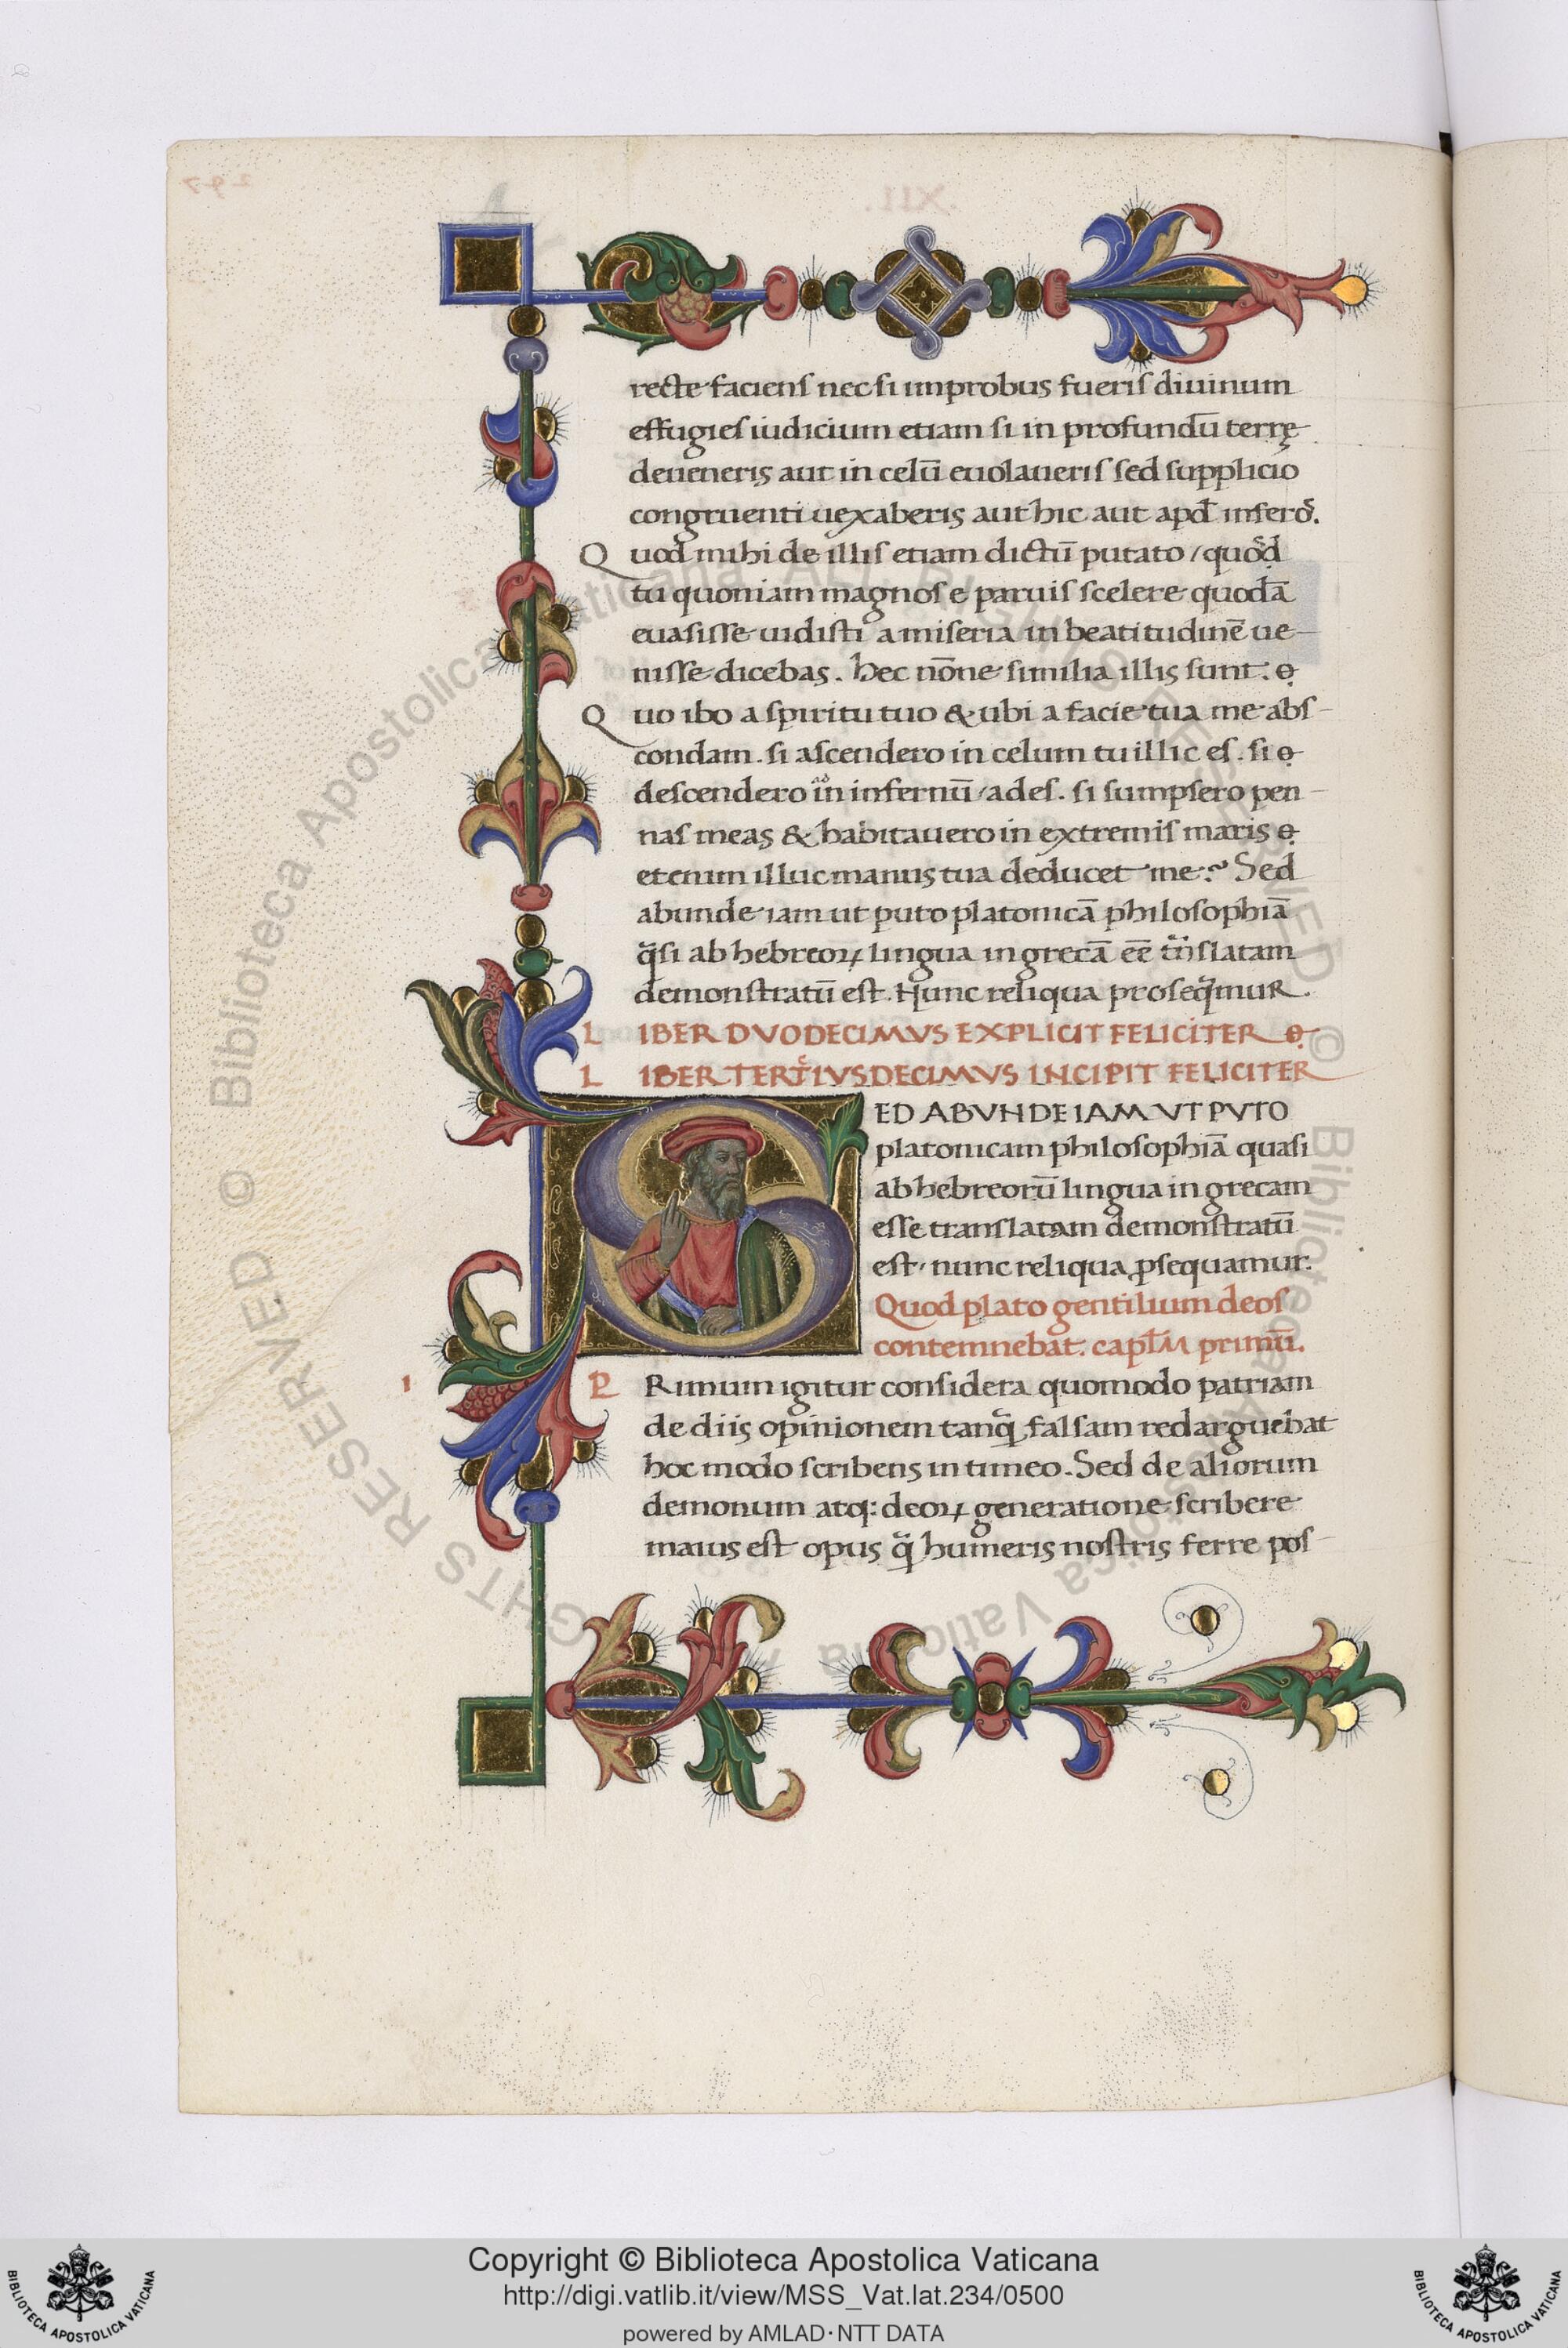 297
XII.
recte faciens nec si improbus fueris diuinum
effugies iudicium etiam si in profundū terrę
deueneris aut in celū euolaueris sed supplicio
congruenti uexaberis aut hic aut apd̄ inferos.
Quod mihi de illis etiam dictū putato / quod
tu quoniam magnos e paruis scelere quodā
euasisse uidisti a miseria in beatitudinē ue-
nisse dicebas. hec nōne similia illis sunt.
Quo ibo a spiritu tuo & ubi a facie tua me abs-
condam. si ascendero in celum tu illic es. si
descendero in infernū / ades. si sumpsero pen-
nas meas & habitauero in extremis maris
etenim illuc manus tua deducet me? Sed
abunde iam ut puto platonicā philosophiā
q̄si ab hebreoꝝ lingua in grecā eē trãslatam
demonstratū est. Nunc reliqua proseq̄muR.
LIBER DVODECIMVS EXPLICIT FELICITER
LIBER TERTIVSDECIMVS INCIPIT FELICITER
SED ABVNDE IAM VT PVTO
platonicam philosophiā quasi
ab hebreorū lingua in grecam
esse translatam demonstratū
est / nunc reliqua ꝓsequamur.
Quod plato gentilium deos
contemnebat. capl̄M primū.
1 PRimum igitur considera quomodo patriam
de diis opinionem tanq̄ falsam redarguebat
hoc modo scribens in timeo. Sed de aliorum
demonum atq: deoꝝ generatione scribere
maius est opus q̄ humeris nostris ferre pos-
© Biblioteca Apostolica Vaticana ALL RIGHTS RESERVED © Biblioteca Apostolica Vaticana ALL RIGHTS RESERVED
Copyright © Biblioteca Apostolica Vaticana
http://digi.vatlib.it/view/MSS_Vat.lat.234/0500
powered by AMLAD·NTT DATA
BIBLIOTECA APOSTOLICA VATICANA
BIBLIOTECA APOSTOLICA VATICANA